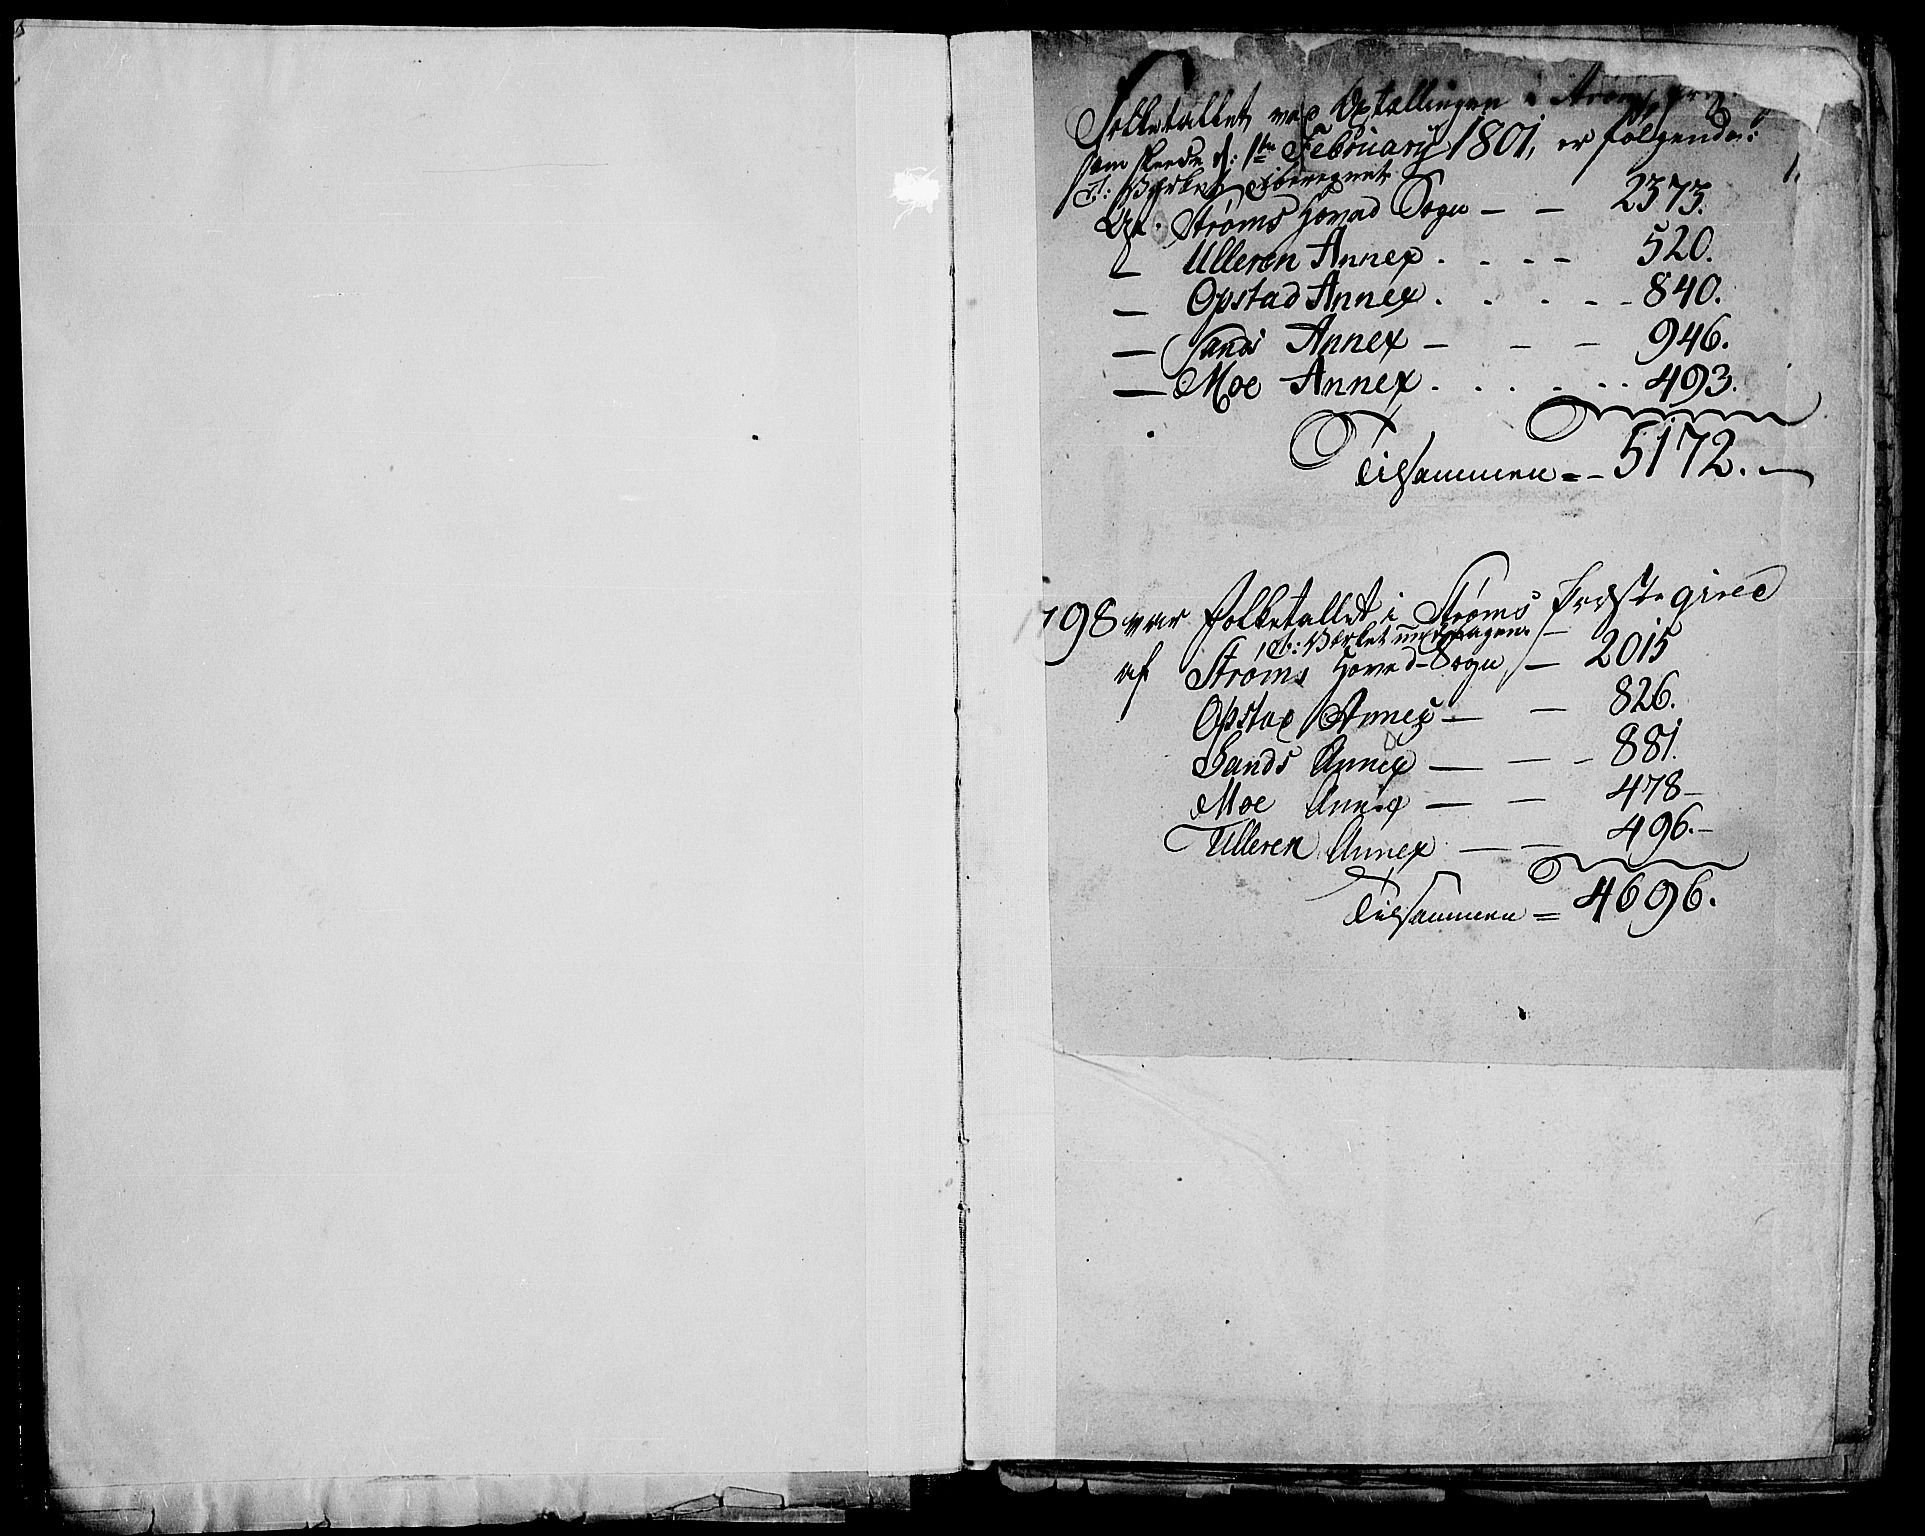 Folketallet ved Optællingen i Strøms
som skeede d: 1te Februarij 1801, er følgende:
Værket iberegnet
Af Strøms Hoved Sogn — — 2373.
— Ulleren Annex . - - - 520.
— Opstad Annex . . . - - 840.
— Sands Annex — - - 946.
— Moe Annex . . . . . . 493.
Tilsammen = - 5172. —
1798 var Folketallet i Strøms Præstegield
Værket undtagen
af Strøms Hoved-Sogn — 2015
Opstad Annex — — 826.
Sands Annex — — - 881.
Moe Annex — — 478 —
Ulleren Annex — — 496. —
Tilsammen = 4696.